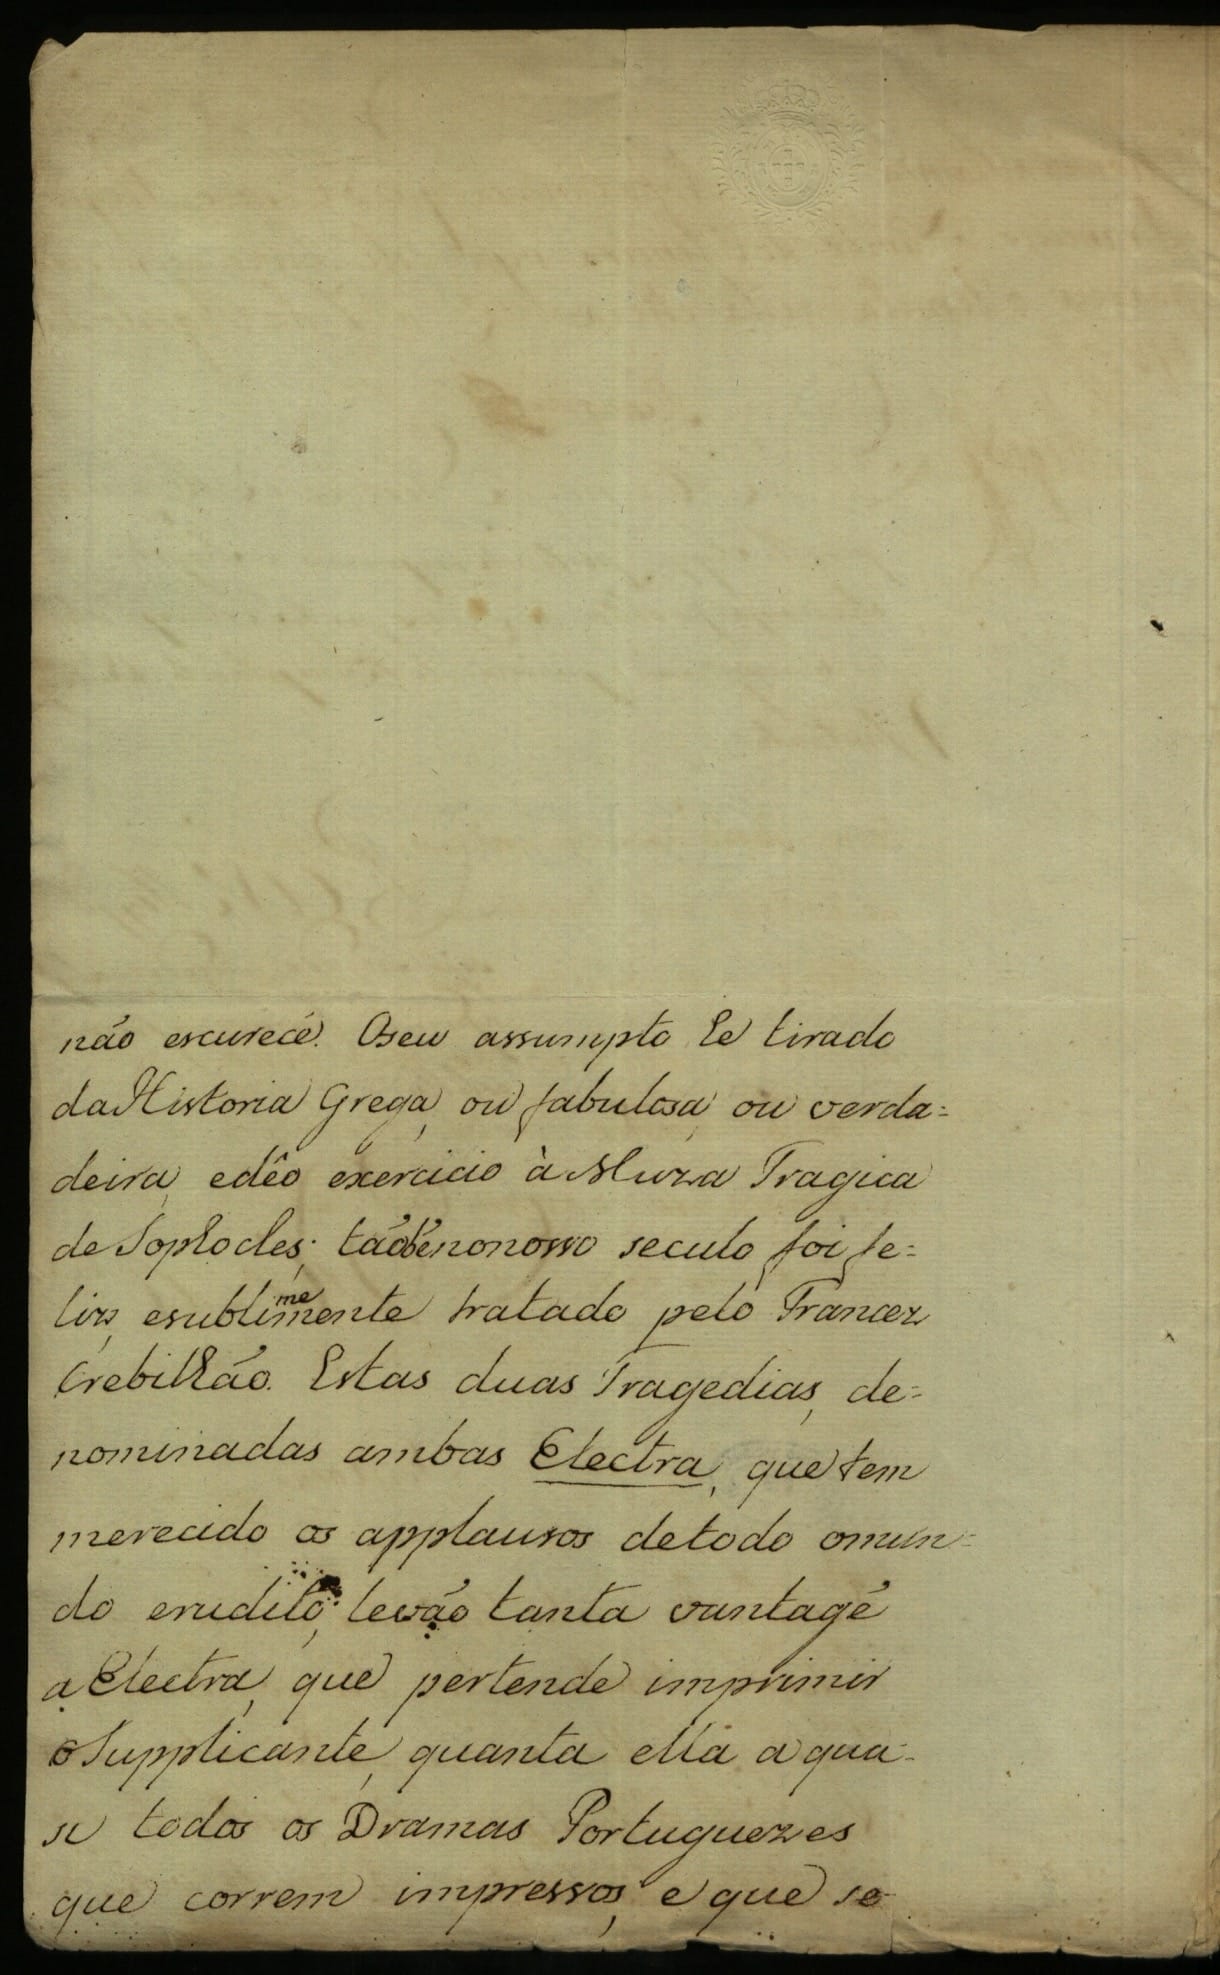 não escurece. Oseu assumpto he tirado
da Historia Grega, ou fabulosa, ou verda=
deira, edêo exercicio à Muza Tragica
de Sophocles: tãobẽ nonosso seculo foi fe=
liz, esublimemente tratado pelo Francez
Crebilhão. Estas duas Tragedias, de=
nominadas ambas Electra, que tem
merecido os applausos detodo omun=
do erudito, levão tanta vantagẽ
a Electra, que pertende imprimir
o Supplicante, quanta ella a qua=
se todos os Dramas Portuguezes
que correm impressos, e que se